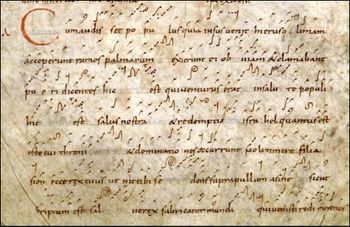 Cumaudis set po pu lus quia iesus uenit hieruso limam
acceperunt ramos palmarum exierunt ei ob uiam &clamabant
pu e ri dicentes hic est qui uenturus erat insalu te populi
hic est salus nostra &redemptio isra hel quantus est
iste cui throni &dominatio nes occurrunt noli timere filia
sion ecce rex tuus uenit tibi se dens suprapullum asine sicut
scriptum est sal ue rex fabricator mundi qui uenisti redi merenos